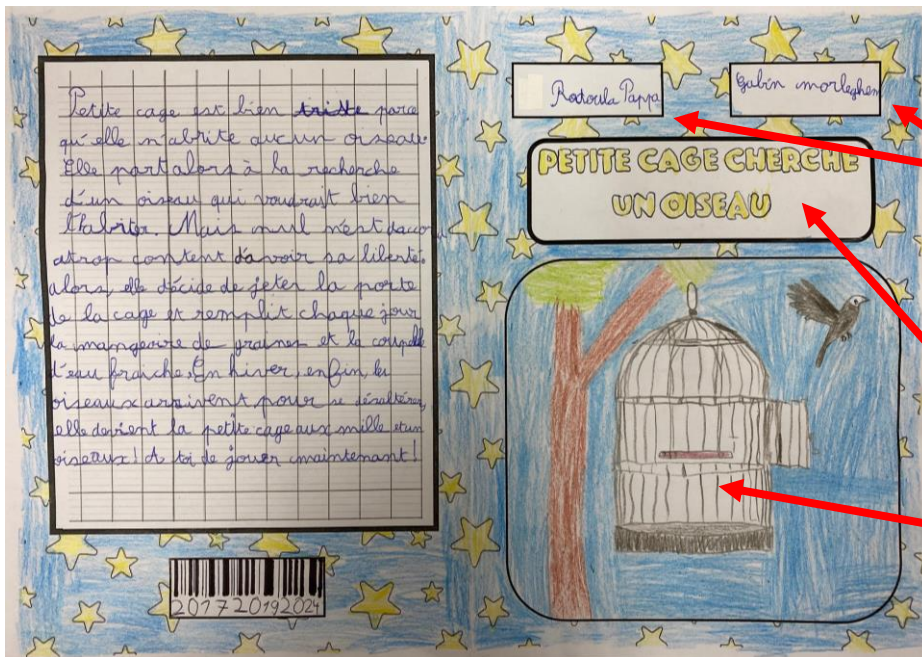 Petite cage est bien triste parce
qu'elle n'abrite aucun oiseau.
Elle part alors à la recherche
d'un oiseau qui voudrait bien
l'habiter. Mais nul n'est d'acco
atrop content d'avoir sa liberté.
alors, elle décide de jeter la porte
de la cage et remplit chaque jour
la mangeoire de graines et la coupelle
d'eau fraîche. En hiver, enfin, les
oiseaux arrivent, pour se désaltérer,
elle devient la petite cage aux mille et un
oiseaux! A toi de jouer maintenant!
201720192024
Rodoula Pappa
Gabin morleghem
PETITE CAGE CHERCHE
UN OISEAU